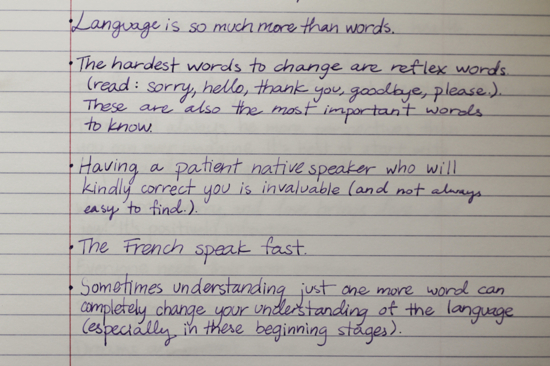 • Language is so much more than words.
• The hardest words to change are reflex words.
(read: sorry, hello, thank you, goodbye, please.).
These are also the most important words
to know.
• Having a patient native speaker who will
kindly correct you is invaluable (and not always
easy to find.).
• The French speak fast.
• Sometimes understanding just one more word can
completely change your understanding of the language
(especially in these beginning stages).